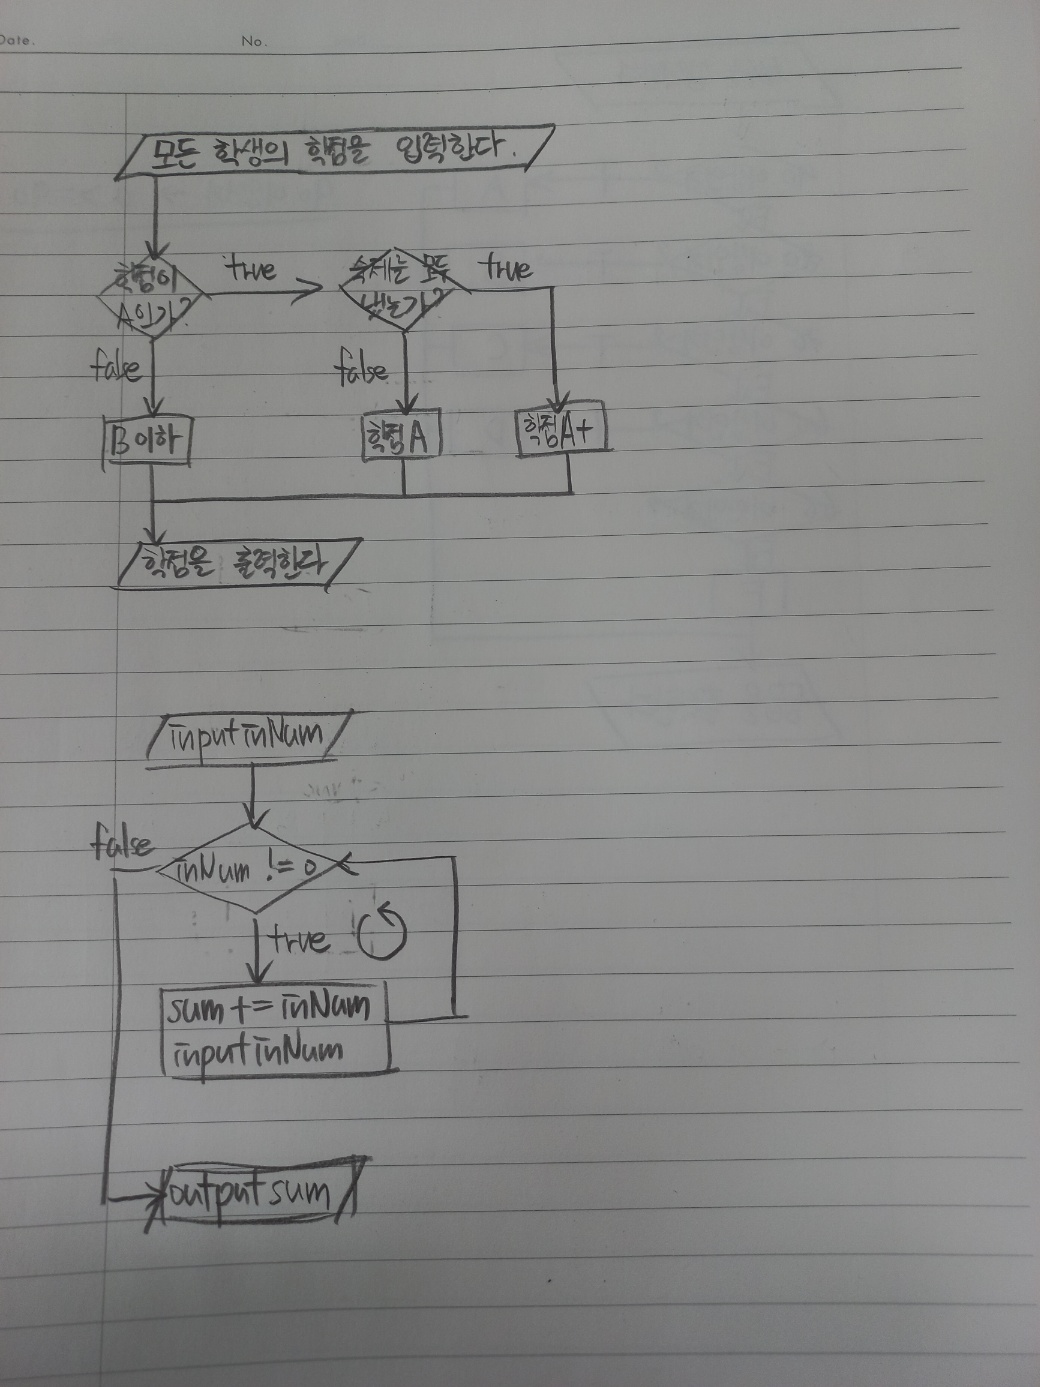 Date.
No.
모든 학생의 학점을 입력한다.
학점이
A인가?
true
숙제는 모두
냈는가?
true
false
false
B이하
학점A
학점A+
학점을 출력한다
input inNum
false
inNum != 0
true
sum += inNum
input inNum
output sum